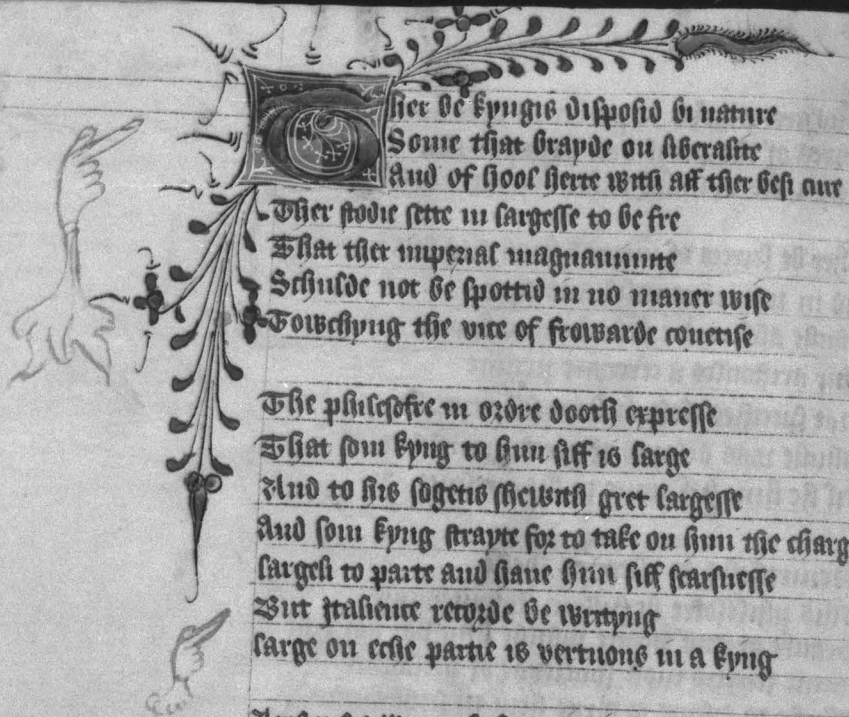 Ther be kyngis disposid bi nature
Some that brayde on liberalite
And of hool herte with all ther besi cure
Ther stodie sette in largesse to be fre
That ther imperial magnanimite
Schulde not be spottid in no maner wise
Towchyng the vice of frowarde couetise
The philesofre in ordre dooth expresse
That som kyng to him silf is large
And to his sogetis shewith gret largesse
And som kyng strayte for to take on him the charg
largeli to parte and haue him silf scarsnesse
But ytalience recorde be writyng
large on eche partie is vertuous in a kyng